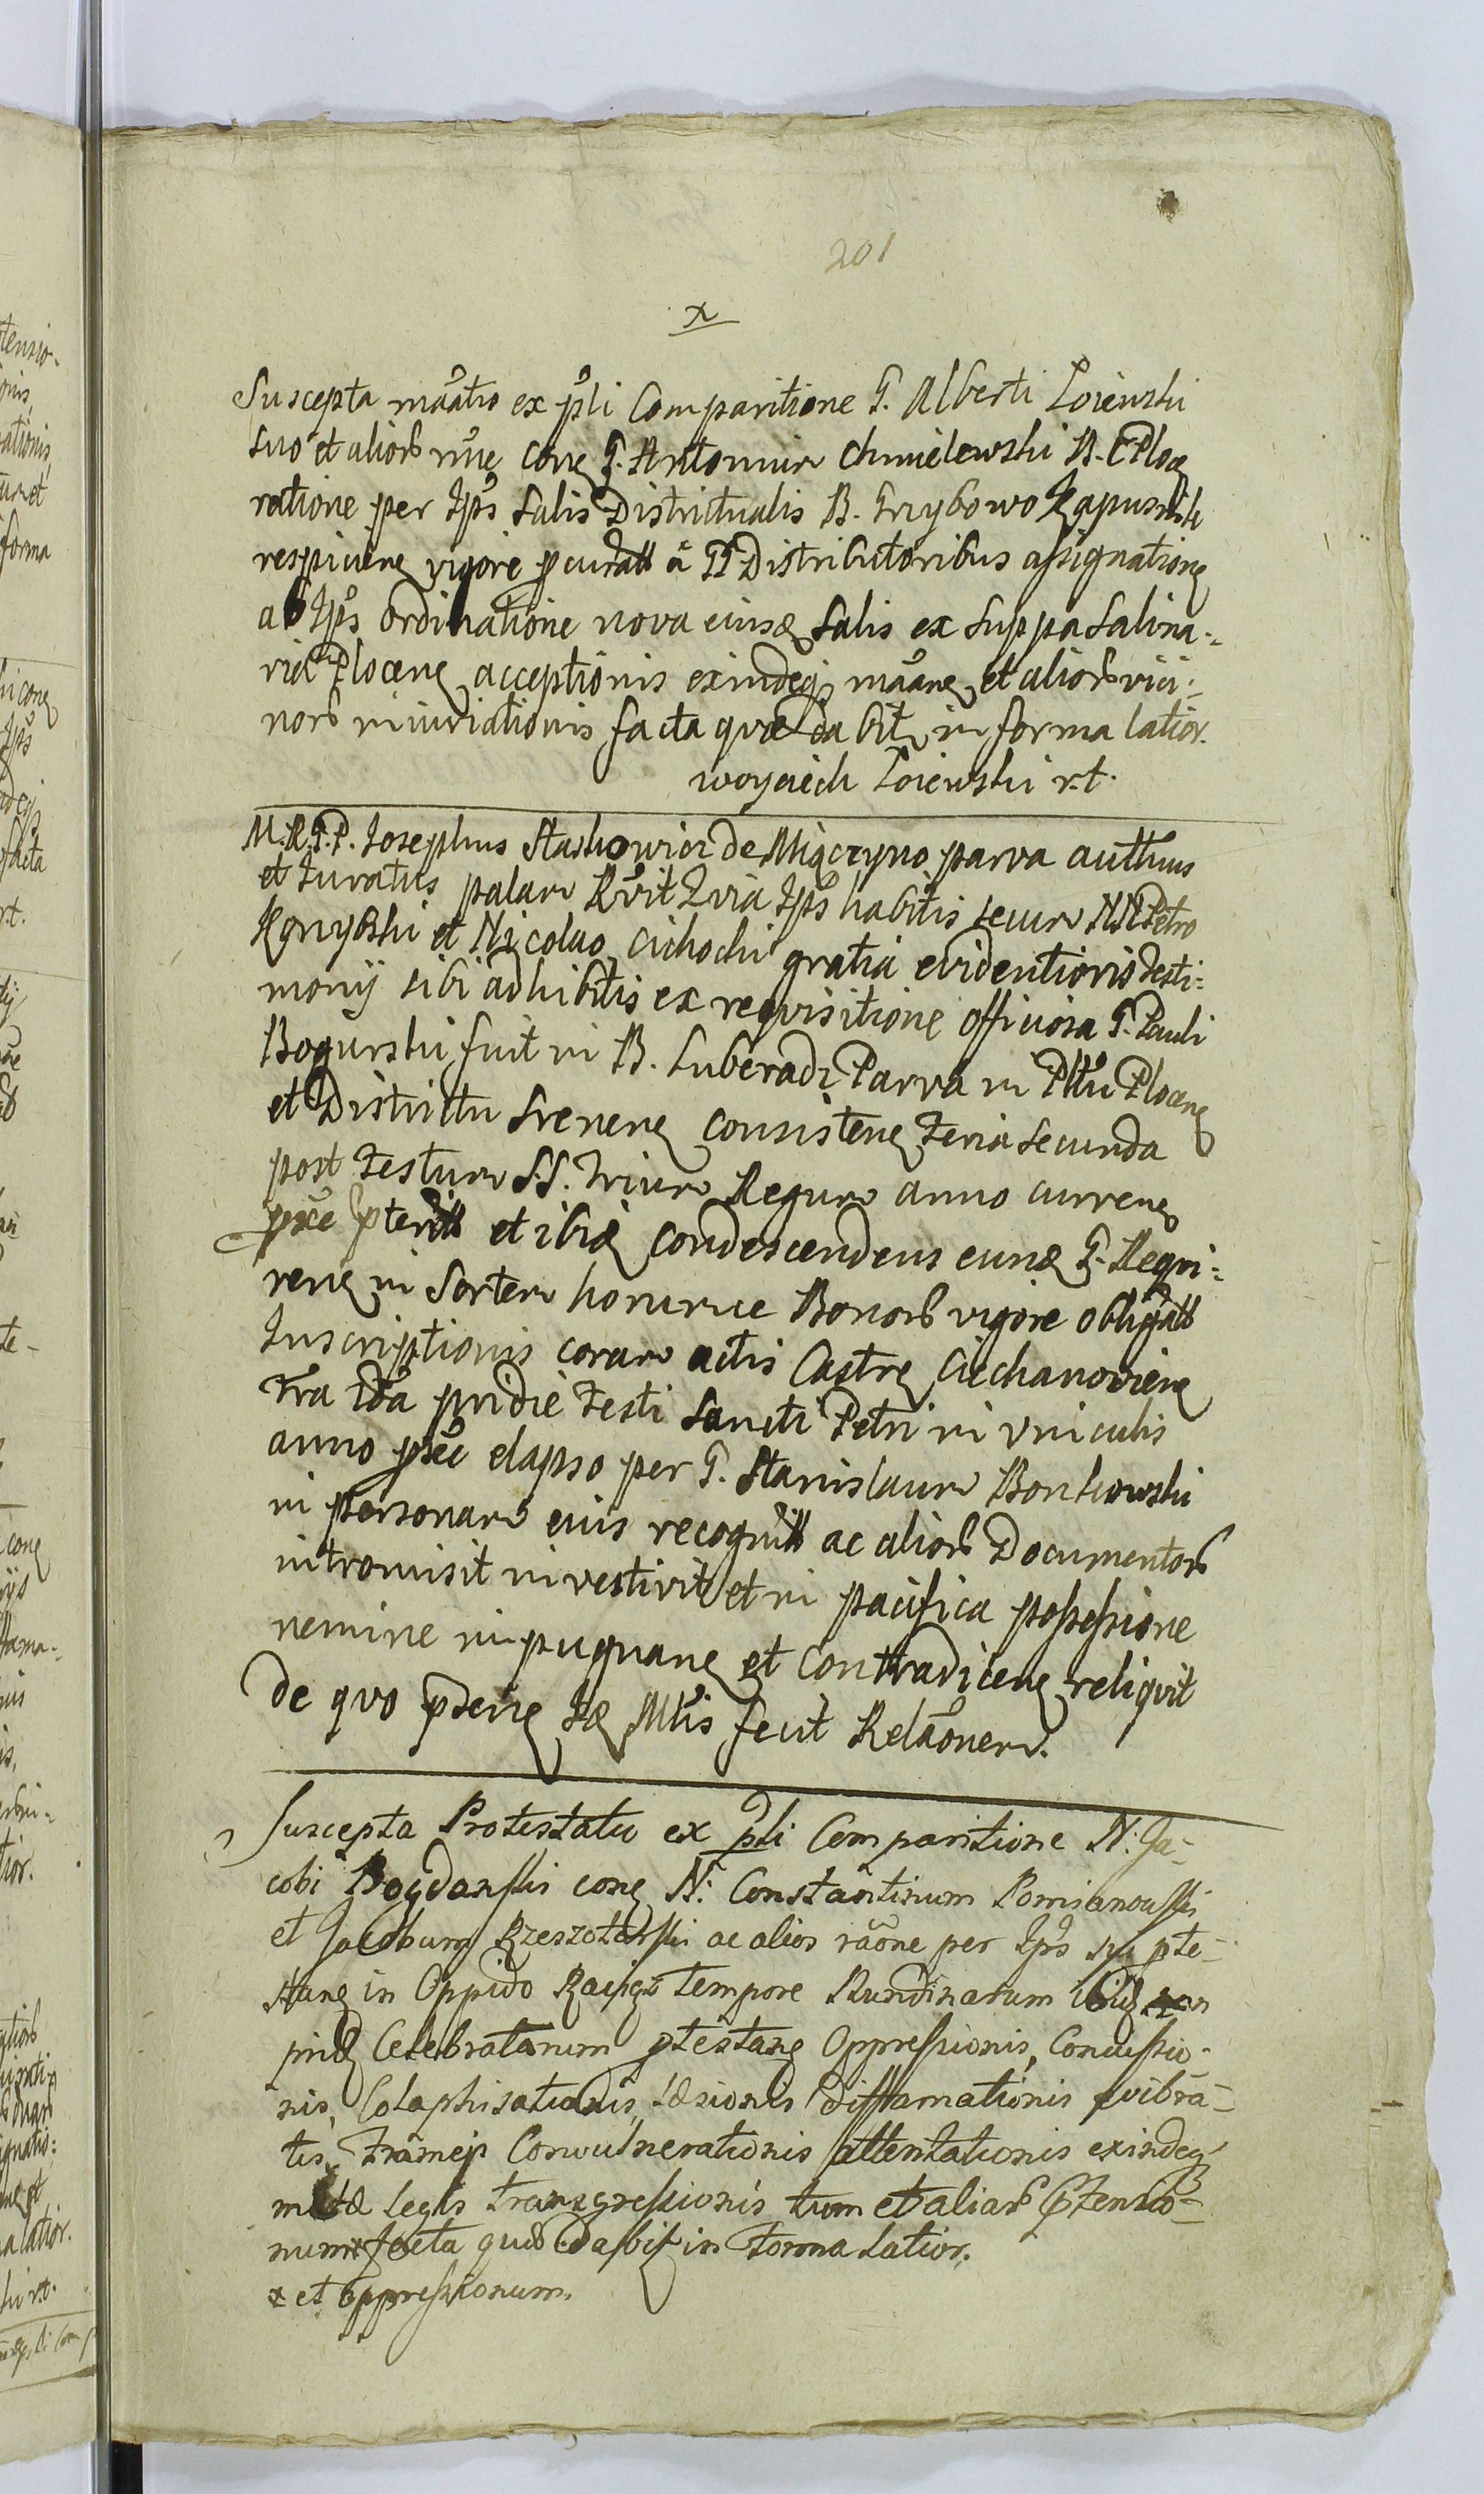 201
x
Suscepta mãatio ex pñli Comparitione G. Alberti Łoiewski
suo et aliorũ nñe conę G. Antonium Chmielewski B. C. Plocę
ratione per Ipš Salis Districtualis B. Grzybowo Kapusnik
respicienę vigore pcuratt à GG Distributoribus assignationę
ab Ipš ordinatione nova eiusdę Salis ex Suppa Salina-
ria Plocenę acceptionis exindeq; mãanę et aliorũ vici-
norũ iniuriationis facta quæ dabit, in forma latior.
Woyciech Łoiewski r.t.
M.R.G.P. Josephus Staskowicz de Miączyno parva authus
et Juratus palam Rvit Quia Ipš habitis secum NN Petro
Kęnybski et Nicolao Cichocki gratia evidentioris Testi-
monij sibi adhibitis ex requisitione officiosa G. Pauli
Bogurski fuit in B. Luberadz Parva in Pttu Plocenę
et Districtu Srenenę consistenę Feria Secunda
post Festum S.S. Trium Regum anno currenę
pxe pteritt et ibidę condescendens eundę G. Requi-
renę in Sortem horumce Bonorũ vigore obligatt
Inscriptionis coram actis Castrę Ciechanovienę
Fra 2da pridie Festi Sancti Petri in Vinculis
anno pxe elapso per G. Stanislaum Bonkowski
in personam eius recognitt ac aliorũ Documentorũ
intromisit investivit et in pacifica possessione
nemine impugnanę et contradicenę reliquit
de quo pñenę Idę Mtis fecit Relãonem.
Suscepta Protestatio ex pñli Comparitione N: Ja-
cobi Bogdanski conę N: Constantinum Pomianowski
et Jacobum Rzeszotarski ac alios rãone per Ipš pte-
stanę in Oppido Raciąż tempore Nundinarum ibidę
pridę Celebratarum ptestanę Oppressionis, Concussio-
nis, Colaphisationis, læsionis diffamationis vibra-
tis, Frameis Convulnerationis attentationis exindeq;
Legis transgressionis tum et aliarũ Ptensio-
num x facta quæ dabit in Forma Latior.
x et oppressionum.